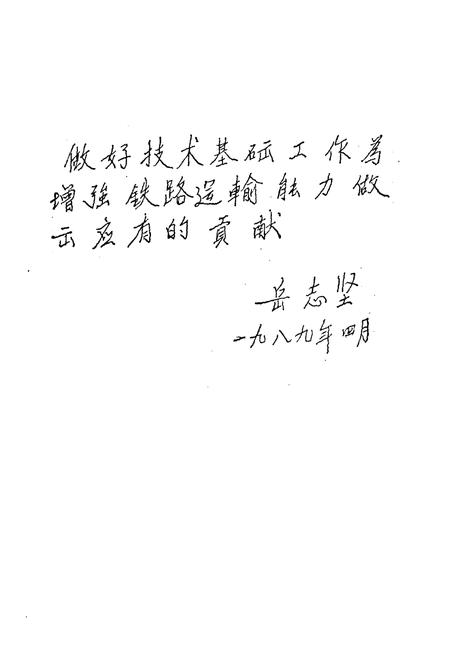 做好技术基础工作為
增強铁路运輸能力做
出应有的貢献
岳志坚
一九八九年四月